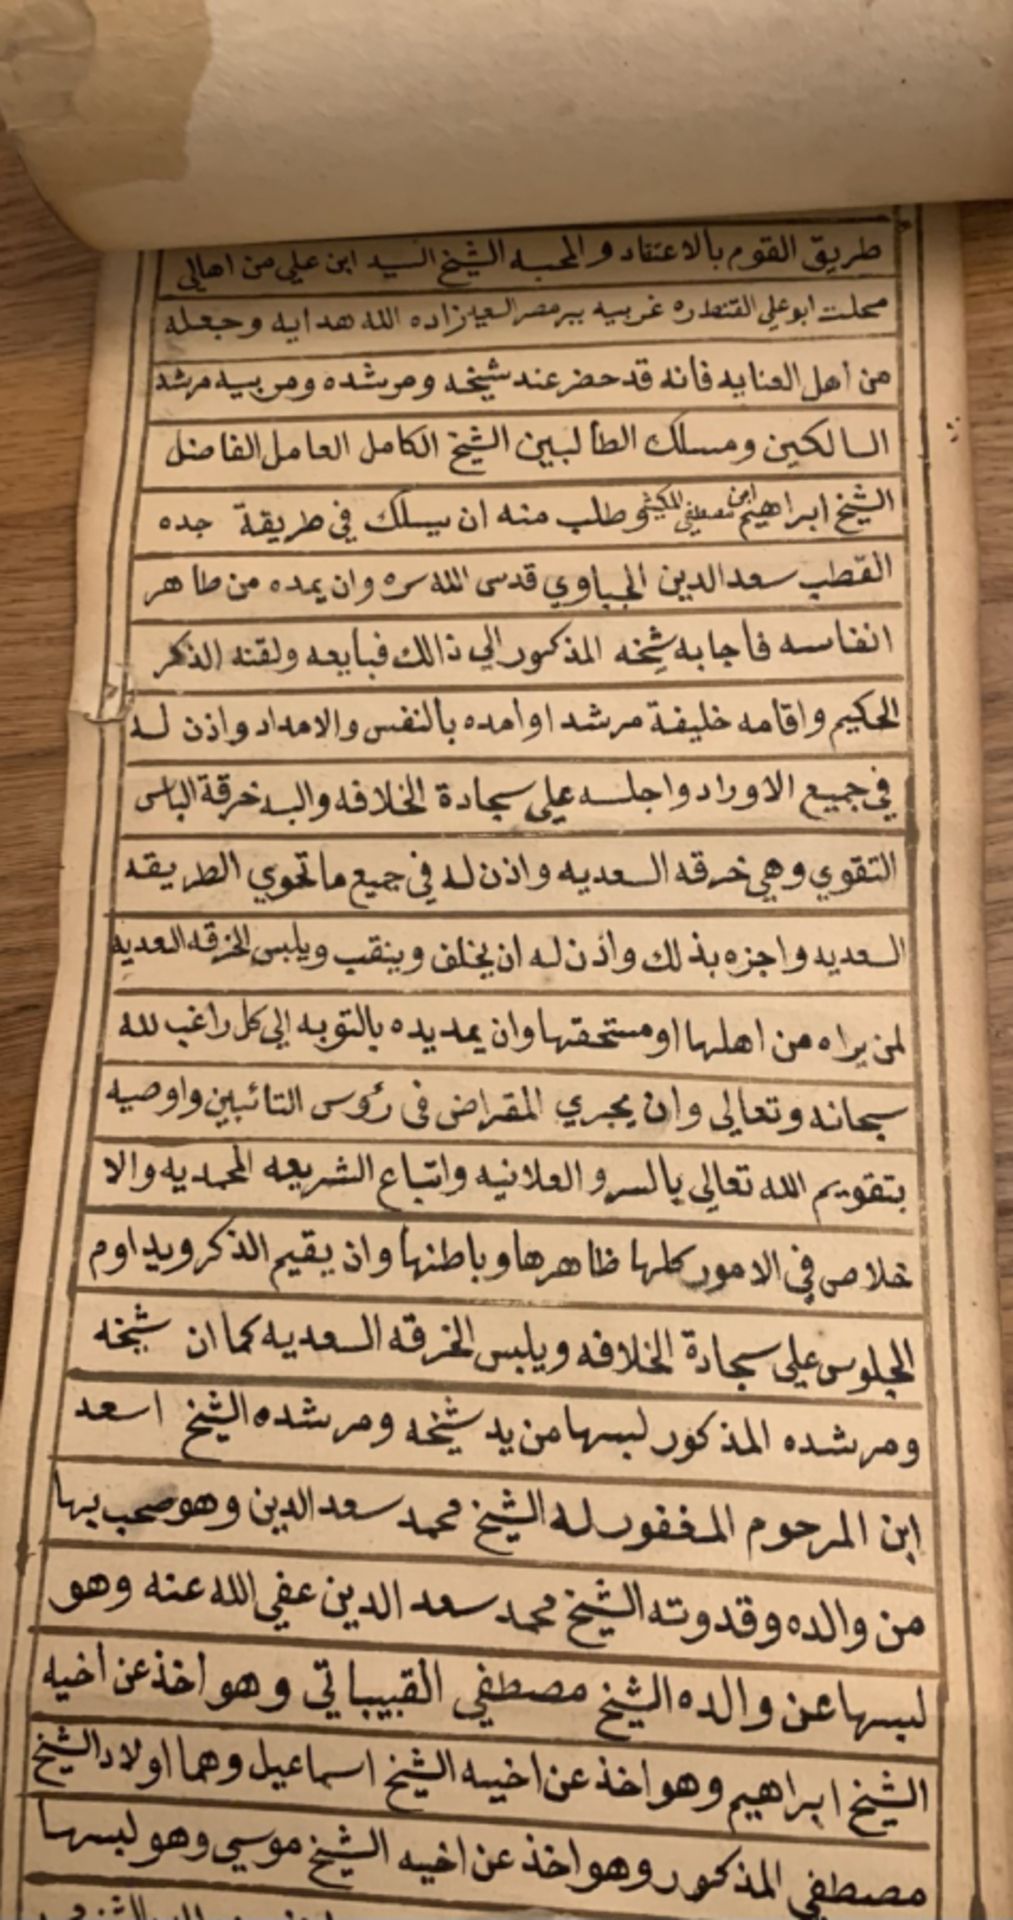 طريق القوم بالاعتقاد والمحبه الشيخ السيد ابن علي من اهالى
محلت ابو علي القنطره غربيه ببر مصر السعيد زاده الله هدايه وجعله
من اهل العنايه فانه قد حضر عند شيخه ومرشده ومربيه مرشد
السالكين ومسلك الطالبين الشيخ الكامل العامل الفاضل
الشيخ ابراهيم ابن مصطفي وطلب منه ان يسلك في طريقة جده
القطب سعد الدين الجباوي قدس الله سره وان يمده من طاهر
انفاسه فاجابه شيخه المذكور الي ذالك فبايعه ولقنه الذكر
الحكيم واقامه خليفة مرشدا وامده بالنفس والامداد واذن له
في جميع الاوراد واجلسه علي سجادة الخلافه والبسه خرقة الباس
التقوي وهي خرقه السعديه واذن له في جميع ما تحوي الطريقه
السعديه واجزه بذلك واذن له ان يخلف وينقب ويلبس الخرقه السعديه
لمن يراه من اهلها او مستحقها وان يمد يده بالتوبه الي كل راغب لله
سبحانه وتعالي وان يجري المقراض في رؤس التائبين واوصيه
بتقويم الله تعالي بالسر والعلانيه واتباع الشريعه المحمديه والا
خلاص في الامور كلها ظاهرها وباطنها وان يقيم الذكر ويداوم
الجلوس علي سجادة الخلافه ويلبس الخرقه السعديه كما ان شيخه
ومرشده المذكور لبسها من يد شيخه ومرشده الشيخ اسعد
ابن المرحوم المغفور له الشيخ محمد سعد الدين وهو صحب بها
من والده وقدوته الشيخ محمد سعد الدين عفي الله عنه وهو
لبسها عن والده الشيخ مصطفي القبيباتي وهو اخذ عن اخيه
الشيخ ابراهيم وهو اخذ عن اخيه الشيخ اسماعيل وهما اولاد الشيخ
مصطفي المذكور وهو اخذ عن اخيه الشيخ موسي وهو لبسها